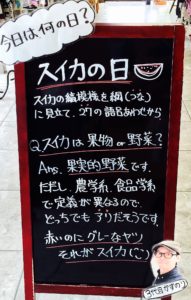 今日は何の日?
スイカの日
スイカの縞模様を綱(つな)
に見立て、27の語呂あわせから
Q.スイカは果物or野菜?
Ans. 果実的野菜です。
ただし、農学系、食品学系
で定義が異なるので、
どっちでもうりだそうです。
赤いのにグレーなヤツ
それがスイカ(^^)
3代目かずのり